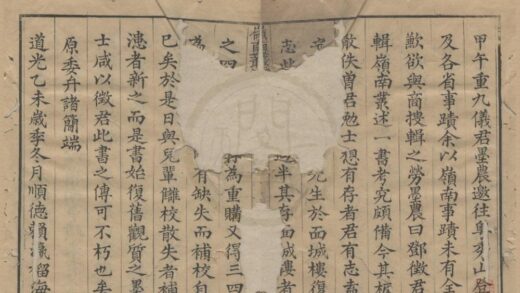 甲午重九儀君墨農邀往阜
山登
及各省事蹟余以嶺南事蹟未有全
歎欲與商搜輯之勞墨農曰鄧徵君
輯嶺南叢述一書考究頗備今其板
散佚曾君勉士想有存者君有志
生於西城樓復
半其存
之四
為重購又得三四
為
有缺失而補校
已矣於是日與兒輩讎校散失者補
漶者新之而是書始復舊觀質之墨
士咸以徵君此書之傳可不朽也矣
原委弁諸簡端
道光乙未歲季冬月順德賴